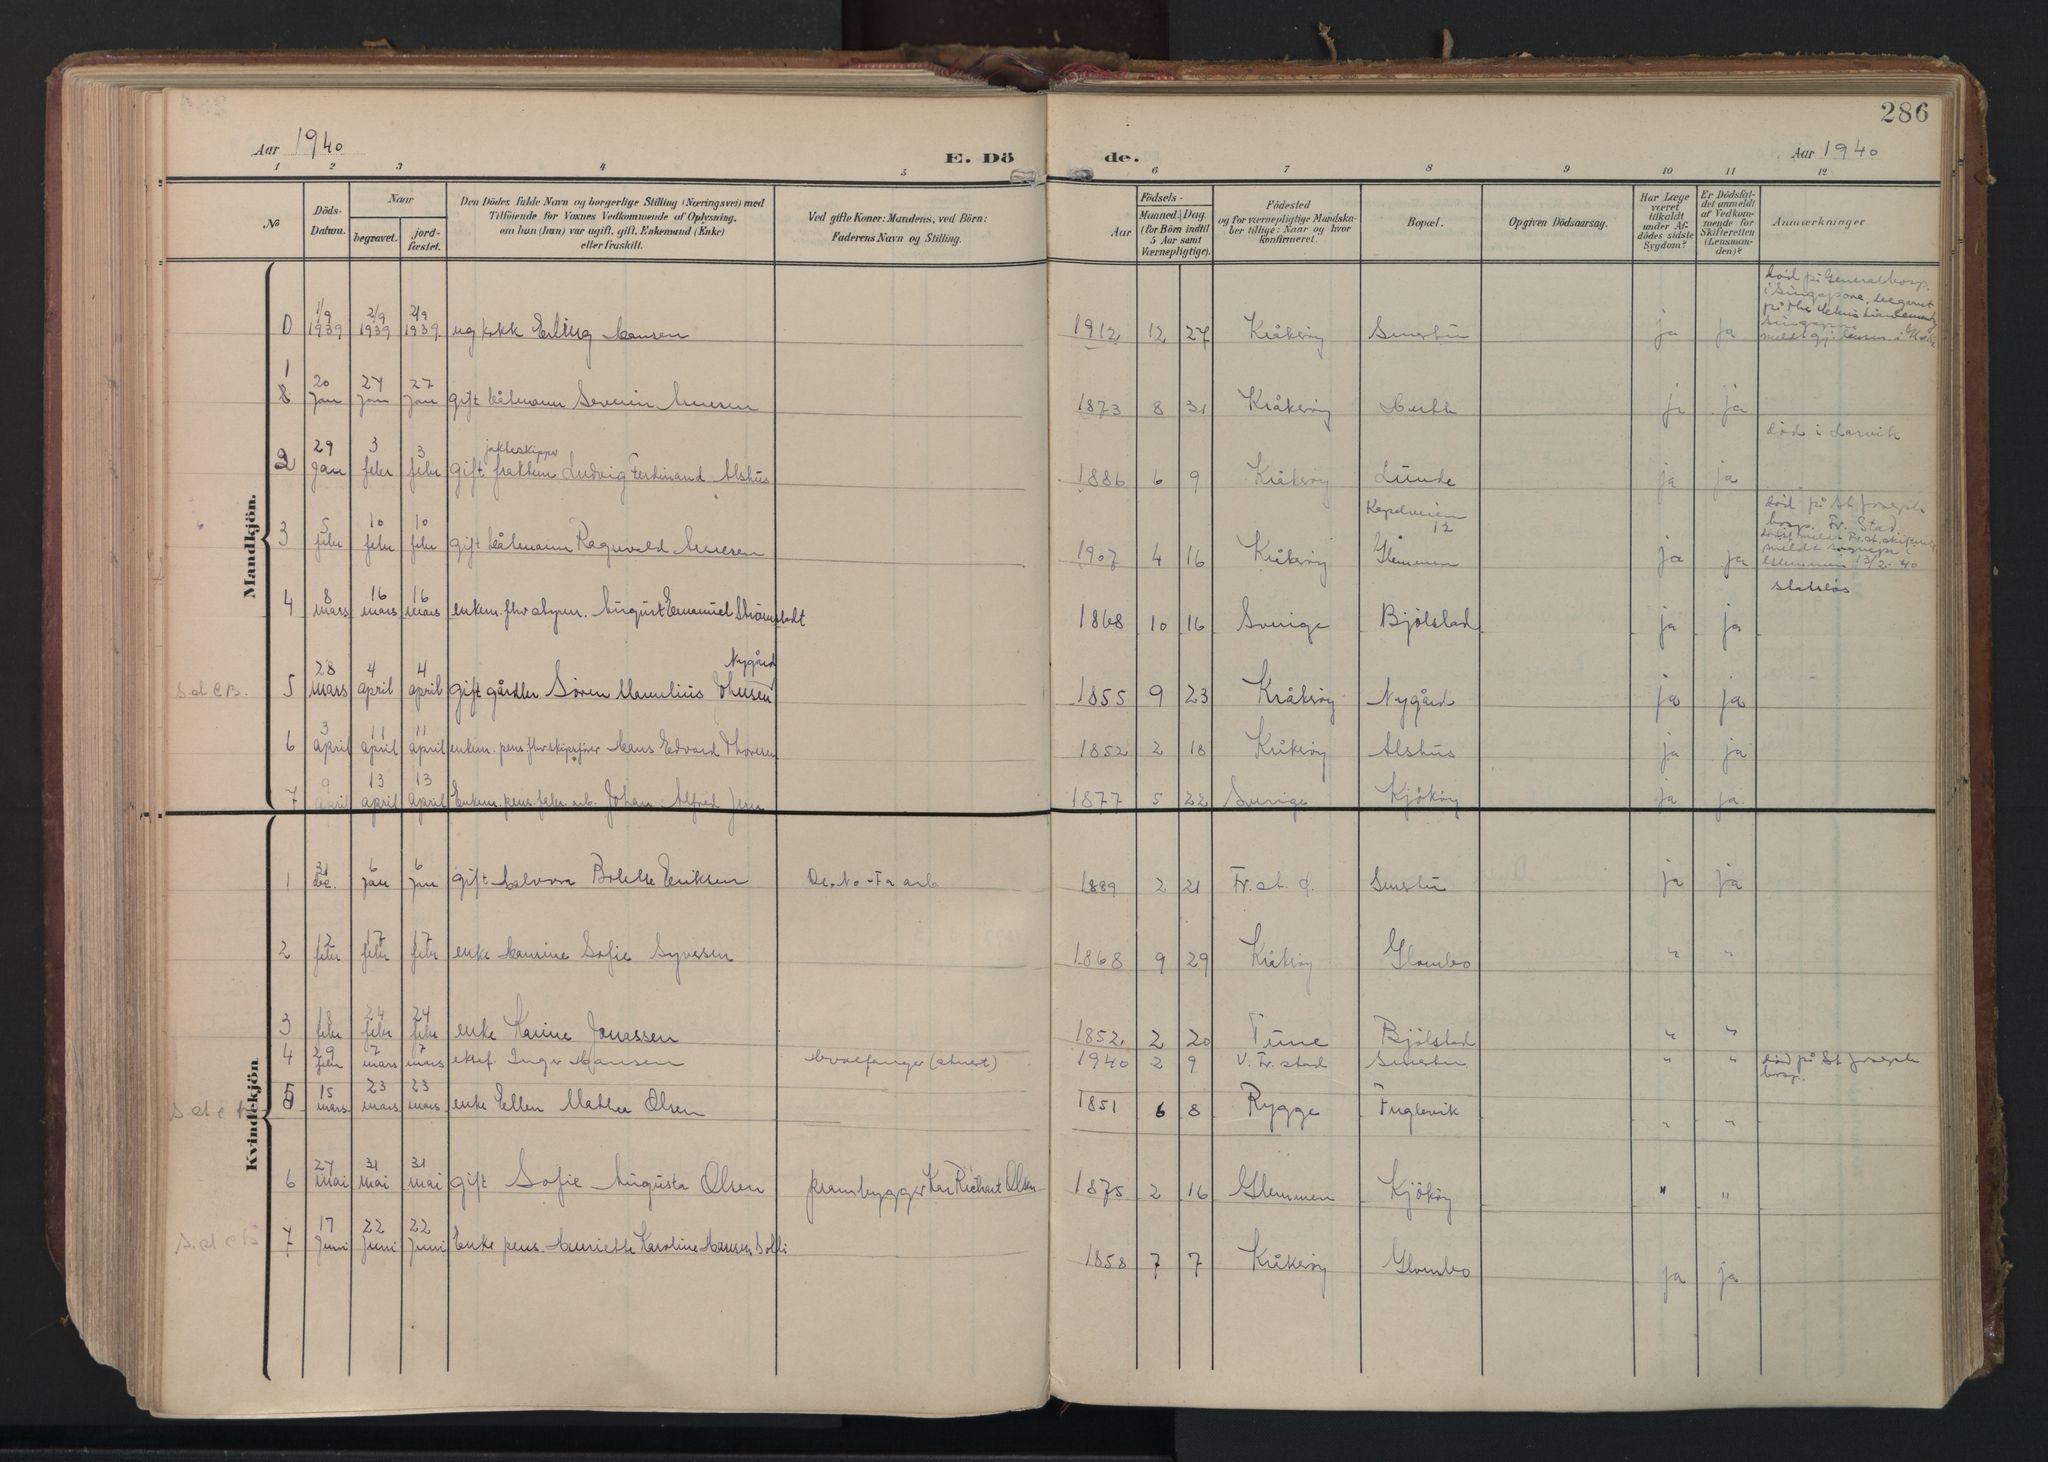 286
Aar 1940
E. Dö de.
Aar 1940
1 2 3 4 5 6 7 8 9 10 11 12
No
Döds-Datum.
Naar
begravet. jordfæstet.
Den Dödes fulde Navn og borgerlige Stilling (Næringsvei) med
Tilföiende for Voxnes Vedkommende af Oplysning,
om han (hun) var ugift, gift, Enkemand (Enke)
eller fraskilt.
Ved gifte Koner: Mandens, ved Börn:
Faderens Navn og Stilling.
Födsels-
Aar Maaned. Dag.
(for Börn indtil
5 Aar samt
Værnepligtige).
Födested
og for værnepligtige Mandskaber tillige: Naar og hvor
konfirmeret.
Bopæl.
Opgiven Dödsaarsag.
Har Læge
været
tilkaldt
under Afdödes sidste
Sygdom?
Er Dödsfaldet anmeldt
af Vedkommende for
Skifteretten
(Lensmanden)?
Anmærkninger
Mandkjön.
0 1/9 1939 2/9 1939 2/9 1939 ug Erling Hansen 1912 12 27 Kråkeröy Smertu ja ja
död på Generalhosp.
i Singapore, begravet
1 20 jan 27 jan 27 jan gift Severin 1873 8 31 Kråkeröy ja ja
2 29 jan 3 febr 3 febr gift jakteskipper Ludvig Ferdinand Alshus 1886 6 9 Kråkeröy Lunde ja ja död i Larvik
3 5 febr 10 febr 10 febr gift Ragnvald 1907 4 16 Kråkeröy Kapelveien 12 Glemmen ja ja
död på St Joseph
hosp. Fr. Stad
4 8 mars 16 mars 16 mars enkem. fhv August Emanuel Strömstedt 1868 10 16 Sverige Bjölstad ja ja statslös
S.d.e.B. 5 28 mars 4 april 4 april gift gårdbr Sören Johnsen Nygård 1855 9 23 Kråkeröy Nygård ja ja
6 3 april 11 april 11 april enkem. pens. fhv skipsförer Hans Edvard Thoresen 1852 2 18 Kråkeröy Alshus ja ja
7 9 april 13 april 13 april Enkem. pens. fabr. arb. Johan Alfred 1877 5 22 Sverige Kjököy ja ja
Kvindekjön
1 31 dec. 6 jan 6 jan gift Halvora Bolette Eriksen 1889 2 21 Fr.st. d. Smertu ja ja
2 12 febr 17 febr 17 febr enke Hanine Sofie Syversen 1868 9 29 Kråkeröy Glombo " "
3 18 febr 24 febr 24 febr enke Karine Jonassen 1852 2 20 Tune Bjölstad " "
4 29 febr 7 mars 7 mars ektef. Inger Hansen hvalfanger 1940 2 9 V. Fr.stad Smertu " " död på St Joseph
hosp.
5 15 mars 23 mars 23 mars enke Ellen Mathea Olsen 1851 6 8 Rygge Fuglevik " "
6 27 mai 31 mai 31 mai gift Sofie Augusta Olsen prambygger Kar Richart Olsen 1875 2 16 Glemmen Kjököy " "
S.d.e.B 7 17 juni 22 juni 22 juni Enke pens. Henriette Karoline Hansen 1858 7 7 Kråkeröy Glombo ja ja